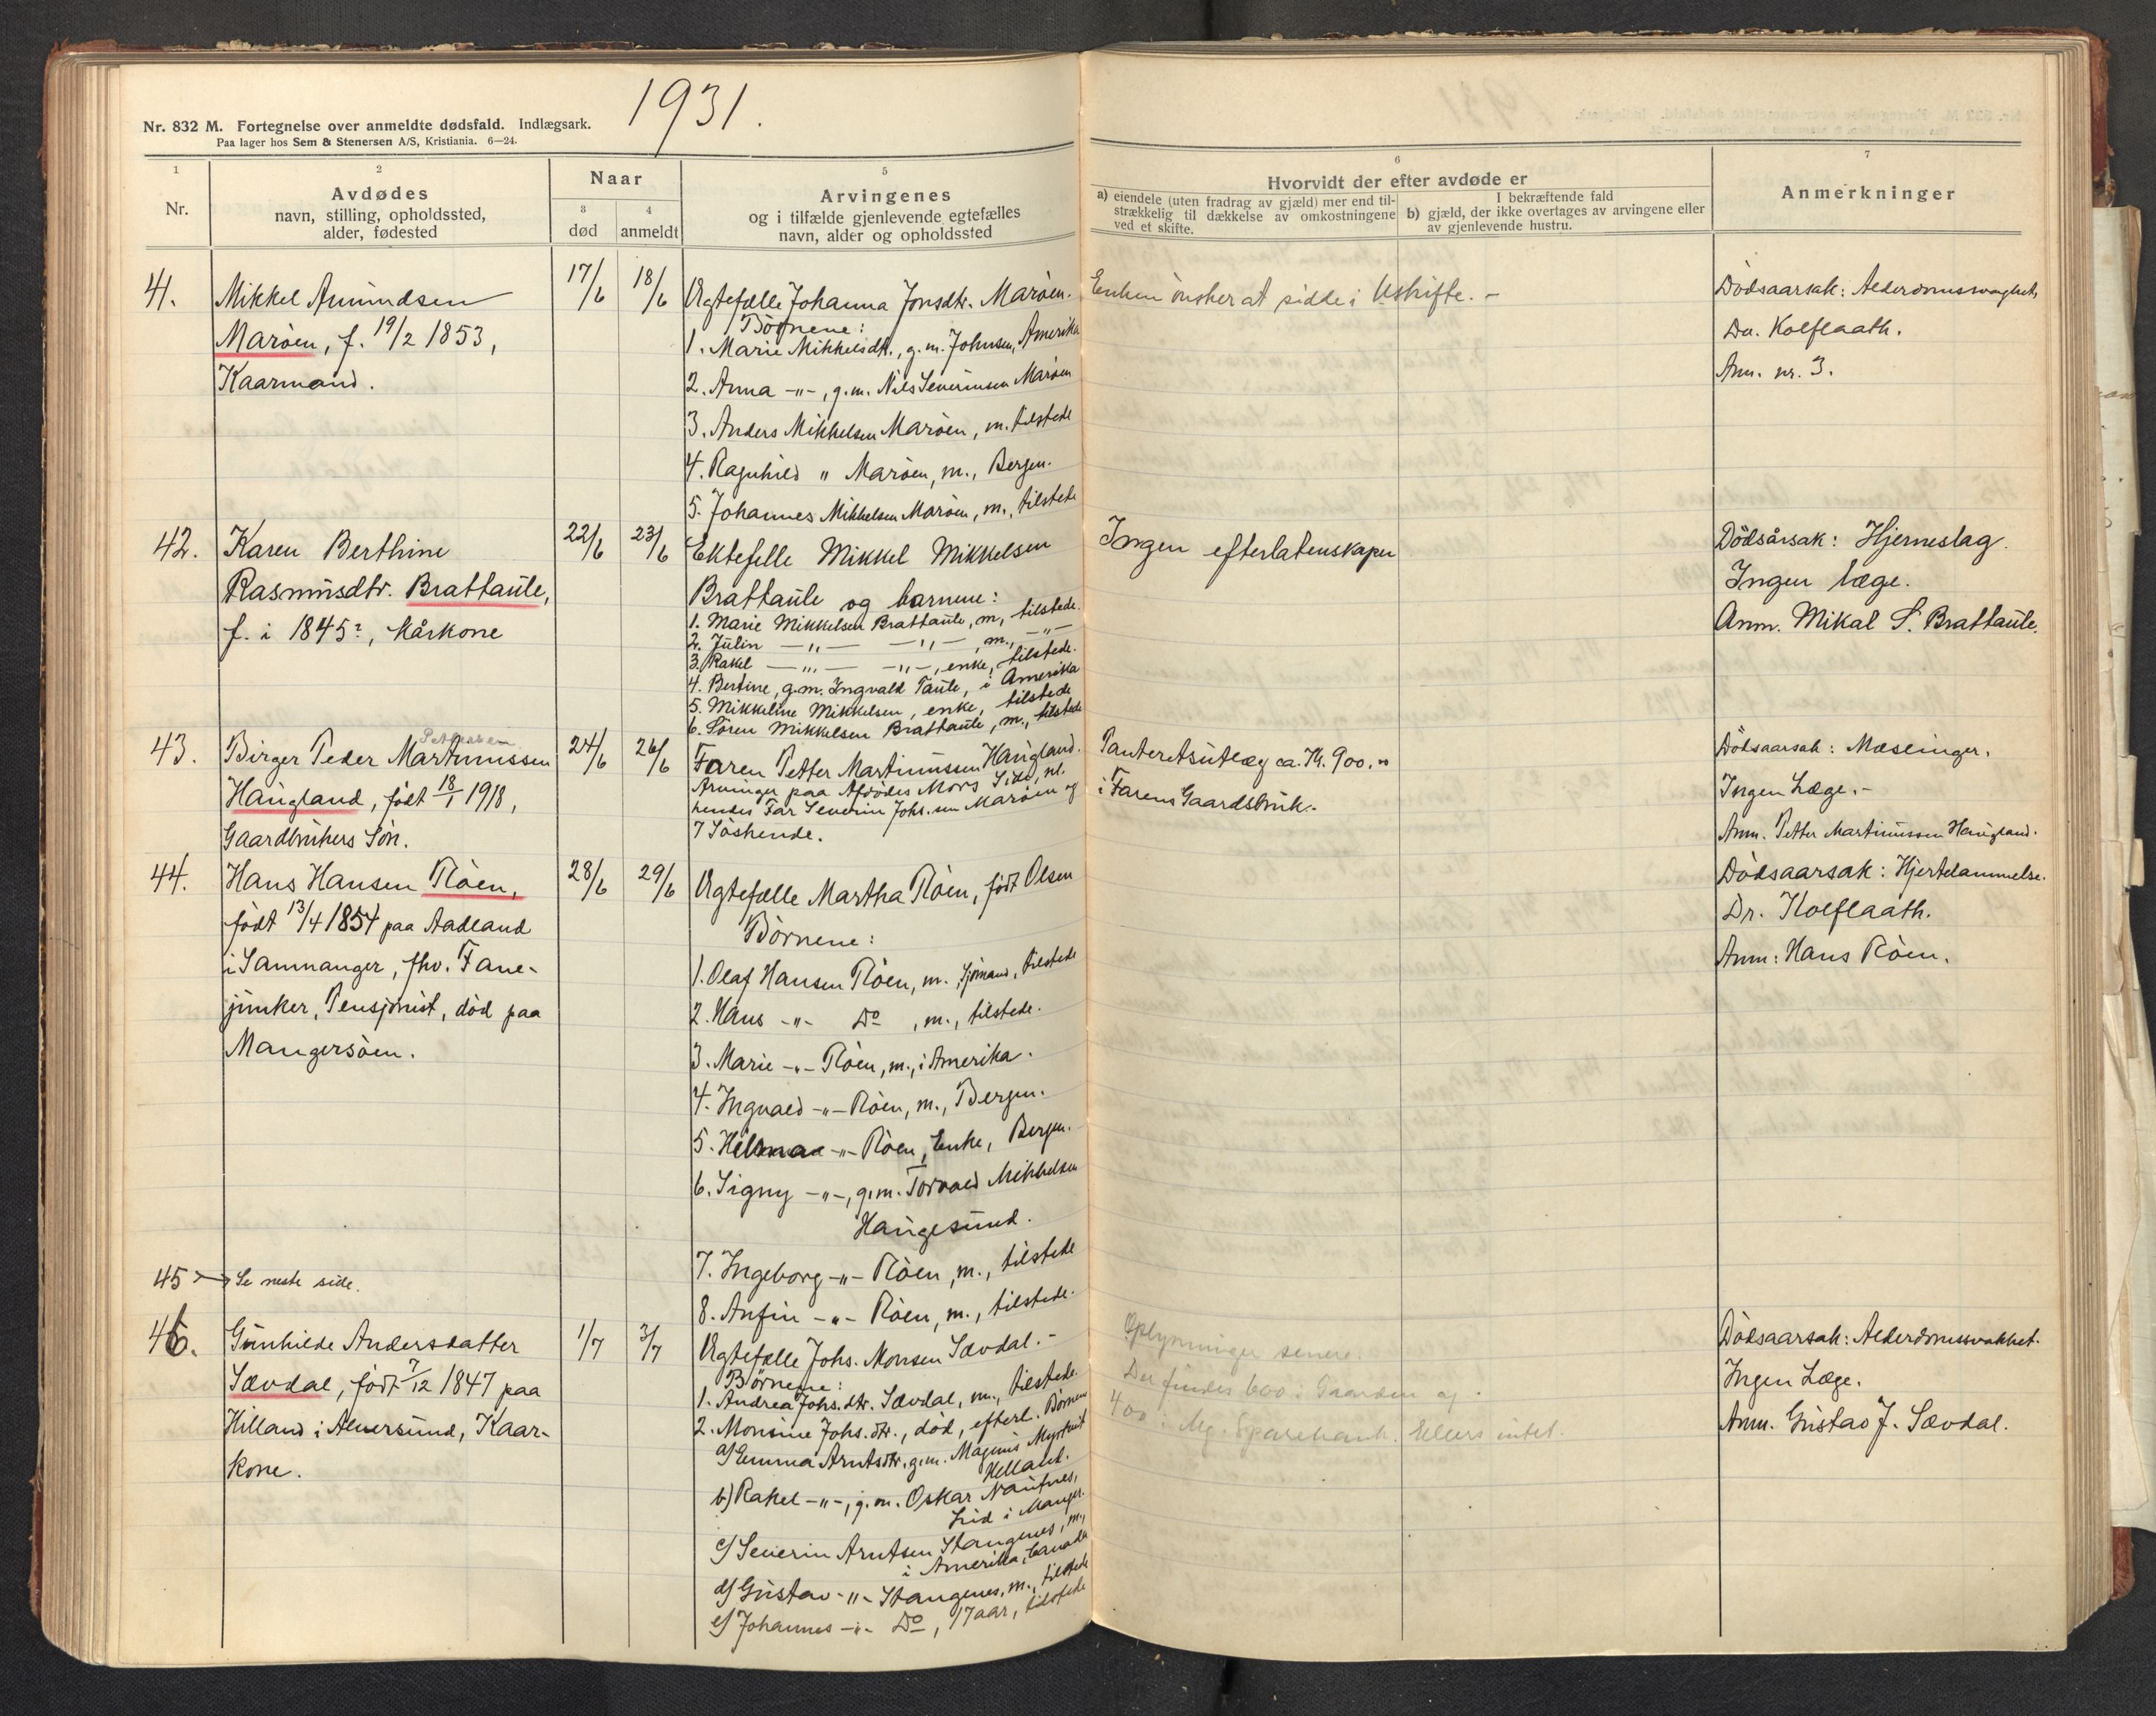 1931.
Nr. 832 M. Fortegnelse over anmeldte dødsfald. Indlægsark.
Paa lager hos Sem & Stenersen A/S, Kristiania. 6—24.
1
Nr.
2
Avdødes
navn, stilling, opholdssted,
alder, fødested
Naar
3
død
4
anmeldt
5
Arvingenes
og i tilfælde gjenlevende egtefælles
navn, alder og opholdssted
6
Hvorvidt der efter avdøde er
a) eiendele (uten fradrag av gjæld) mer end til-
strækkelig til dækkelse av omkostningene
ved et skifte.
I bekræftende fald
b) gjæld, der ikke overtages av arvingene eller
av gjenlevende hustru.
7
Anmerkninger
41.
Mikkel Amundsen
Maröen, f. 19/2 1853,
Kaarmand.
17/6
18/6
Ægtefælle Johanna Jonsdtr. Maröen.
Börnene:
1. Marie Mikkelsdtr., g.m. Johnsen, Amerika
2. Anna -"-, g.m. Nils Severinsen Maröen
3. Anders Mikkelsen Maröen, m. tilstede
4. Ragnhild " Maröen, m., Bergen.
5. Johannes Mikkelsen Maröen, m., tilstede
Enken önsker at sidde i Uskifte. -
Dödsaarsak: Alderdomssvaghet,
Kolflaath.
Anm. nr. 3.
42.
Karen Berthine
Rasmusdtr. Brattaule,
f. i 1845?, kårkone
22/6
23/6
Ektefelle Mikkel Mikkelsen
Brattaule og barnene:
1. Marie Mikkelsen Brattaule, m, tilstede.
2. Julin -"- -"-, m., -"-
3. Rakel -"- -"-, enke, tilstede.
4. Bertine, g.m. Ingvald Taule, i Amerika
5. Mikkeline Mikkelsen, enke, tilstede
6. Sören Mikkelsen Brattaule, m., tilstede
Ingen efterlatenskaper
Dödsårsak: Hjerneslag.
Ingen læge.
Anm. Mikal S. Brattaule.
43.
Pettersen
Birger Peder Martinussen
Haugland, födt 18/1 1918,
Gaardbrukers Sön.
24/6
26/6
Faren Petter Martinussen Haugland.
Arvinger paa Afdödes Mors Side, nl.
hendes Far Severin Johs.sen Maröen og
7 Söskende.
Panteretsutlæg ca. Kr. 900.00
i Farens Gaardsbruk.
Dödsaarsak: Mæslinger.
Ingen Læge.-
Anm. Petter Martinussen Haugland.
44.
Hans Hansen Röen,
födt 13/4 1854 paa Aadland
i Samnanger, fhv. Fane-
junker, Pensjonist, död paa
Mangersöen.
28/6
29/6
Ægtefælle Martha Röen, födt Olsen
Börnene:
1. Olaf Hansen Röen, m., Sjömand, tilstede
2. Hans -"- Do, m., tilstede.
3. Marie -"- Röen, m., i Amerika.
4. Ingvald -"- Röen, m., Bergen.
5. Helmaa -"- Röen, Enke, Bergen.
6. Signy -"-, g.m. Torvald Mikkelsen
Haugesund.
7. Ingeborg -"- Röen, m., tilstede
8. Anfin -"- Röen, m., tilstede.
Dödsaarsak: Hjertelammelse.
Dr. Kolflaath.
Anm: Hans Röen.
45 → Se neste side.
46.
Gunhilde Andersdatter
Sævdal, födt 7/12 1847 paa
Hilland i Alversund, Kaar-
kone.
1/7
3/7
Ægtefælle Johs. Monsen Sævdal.-
Börnene:
1. Andrea Johs.dtr. Sævdal, m., tilstede.
2. Monsine Johs.dtr., död, efterl. Börnene
a) Emma Arntsdtr. g.m. Magnus
Helland.
b) Rakel -"-, g.m. Oskar
i Manger.
c) Severin Arntsen Stangenes, m.,
i Amerika, Canada
d) Gustav -"- Stangenes, m., tilstede
e) Johannes -"- Do, 17 aar, tilstede
Oplysninger senere.
Der findes 600 i Gaarden og
400 i Mg. Sparebank. Ellers intet.
Dödsaarsak: Alderdomssvakhet.
Ingen Læge.
Anm. Gustav J. Sævdal.